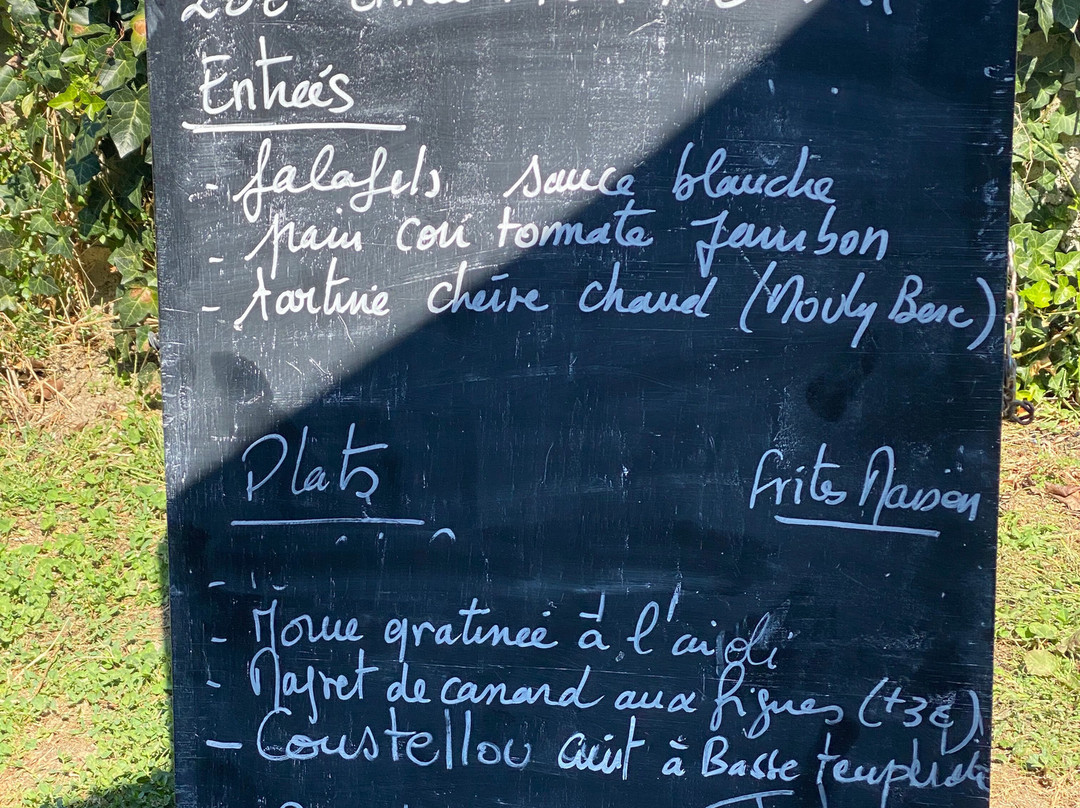 Entrées
- falafels sauce blanche
- pain con tomate Jambon
- tartine chèvre chaud (Mouly Benc)
Plats
Frites Maison
- Morue gratinée à l'aïoli
- Magret de canard aux figues (+3€)
- Coustellou cuit à Basse température